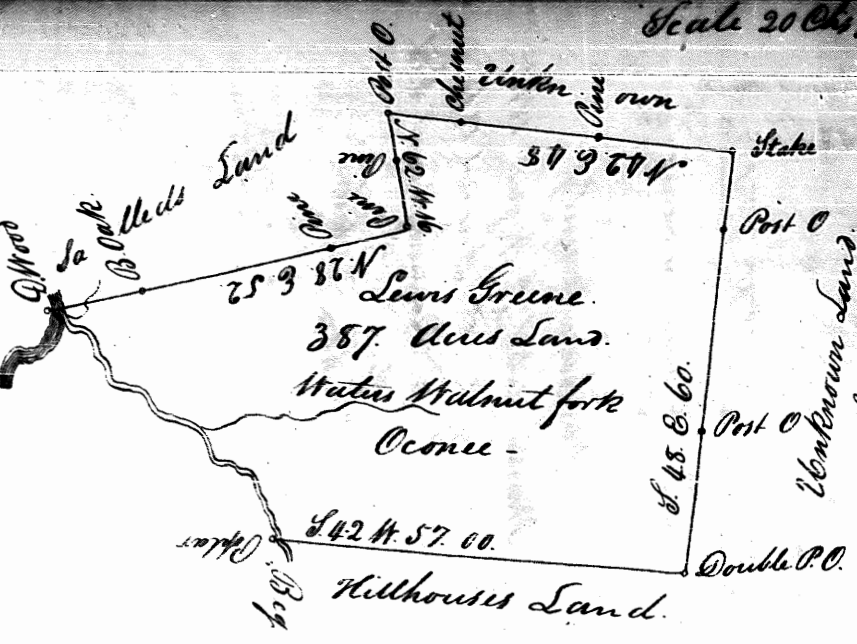 Scale 20 Chs.
Post O.
Chesnut
Unkn own
Pine
Stake
N. 42 E. 48
N. 62 W. 16
Pine
Pine
Pine
Land
B Oak.
D. Wood
N 28 E 52
Post O
Lewis Greene.
387. Acres Land.
Waters Walnut fork
Oconee -
S. 48. E. 60.
Post O
Unknown Land.
S. 42 W. 57. 00.
Poplar
Big
Double P. O.
Hillhouses Land.